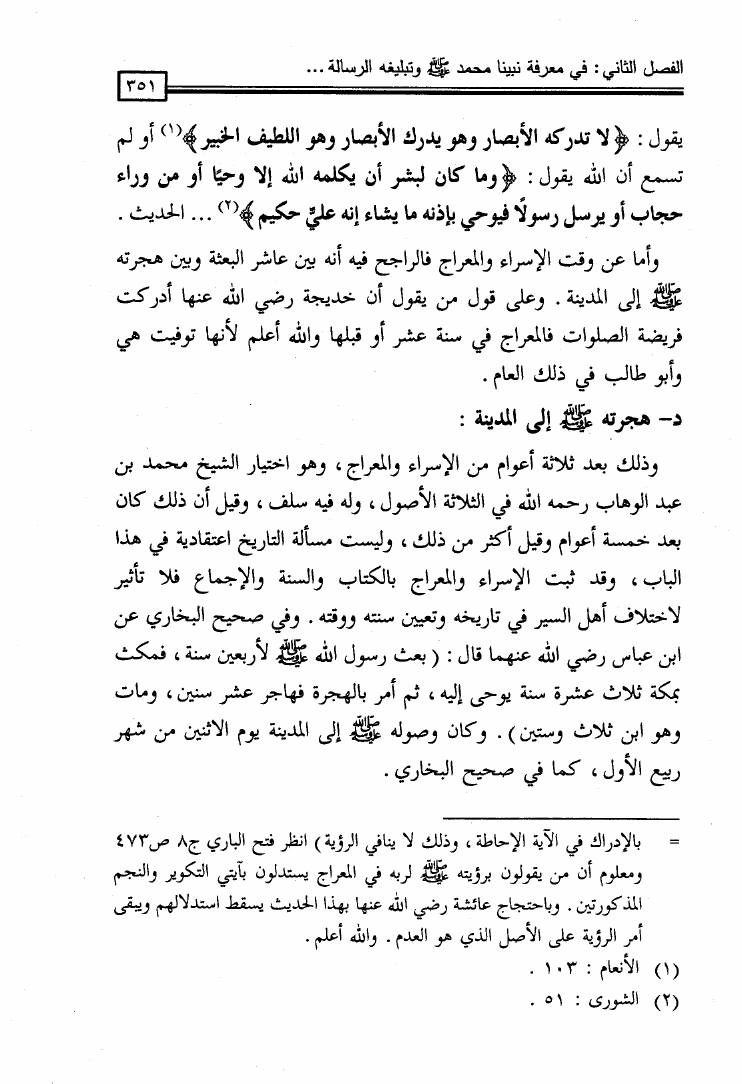 الفصل الثاني : في معرفة نبينا محمد ﷺ وتبليغه الرسالة ...
٣٥١
يقول : ﴿ لا تدركه الأبصار وهو يدرك الأبصار وهو اللطيف الخبير ﴾(١) أو لم
تسمع أن الله يقول : ﴿ وما كان لبشر أن يكلمه الله إلا وحيًا أو من وراء
حجاب أو يرسل رسولًا فيوحي بإذنه ما يشاء إنه عليّ حكيم ﴾(٢) ... الحديث .
وأما عن وقت الإسراء والمعراج فالراجح فيه أنه بين عاشر البعثة وبين هجرته
ﷺ إلى المدينة . وعلى قول من يقول أن خديجة رضي الله عنها أدركت
فريضة الصلوات فالمعراج في سنة عشر أو قبلها والله أعلم لأنها توفيت هي
وأبو طالب في ذلك العام .
د- هجرته ﷺ إلى المدينة :
وذلك بعد ثلاثة أعوام من الإسراء والمعراج ، وهو اختيار الشيخ محمد بن
عبد الوهاب رحمه الله في الثلاثة الأصول ، وله فيه سلف ، وقيل أن ذلك كان
بعد خمسة أعوام وقيل أكثر من ذلك ، وليست مسألة التاريخ اعتقادية في هذا
الباب ، وقد ثبت الإسراء والمعراج بالكتاب والسنة والإجماع فلا تأثير
لاختلاف أهل السير في تاريخه وتعيين سنته ووقته . وفي صحيح البخاري عن
ابن عباس رضي الله عنهما قال : ( بعث رسول الله ﷺ لأربعين سنة ، فمكث
بمكة ثلاث عشرة سنة يوحى إليه ، ثم أمر بالهجرة فهاجر عشر سنين ، ومات
وهو ابن ثلاث وستين ) . وكان وصوله ﷺ إلى المدينة يوم الاثنين من شهر
ربيع الأول ، كما في صحيح البخاري .
= بالإدراك في الآية الإحاطة ، وذلك لا ينافي الرؤية ) انظر فتح الباري ج٨ ص٤٧٣
ومعلوم أن من يقولون برؤيته ﷺ لربه في المعراج يستدلون بآيتي التكوير والنجم
المذكورتين . وباحتجاج عائشة رضي الله عنها بهذا الحديث يسقط استدلالهم ويبقى
أمر الرؤية على الأصل الذي هو العدم . والله أعلم .
(١) الأنعام : ١٠٣ .
(٢) الشورى : ٥١ .